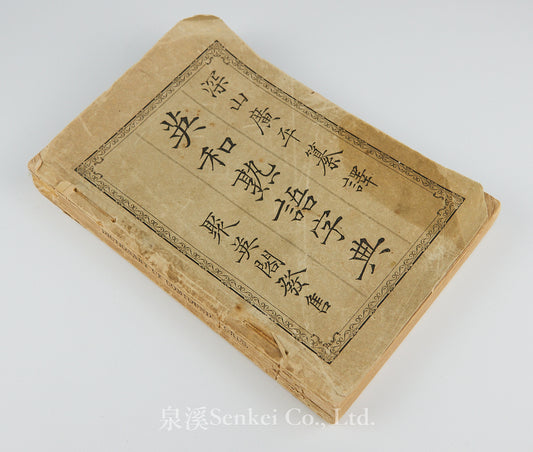 深山廣平纂譯
英和熟語字典
聚英閣發售
泉溪Senkei Co., Ltd.